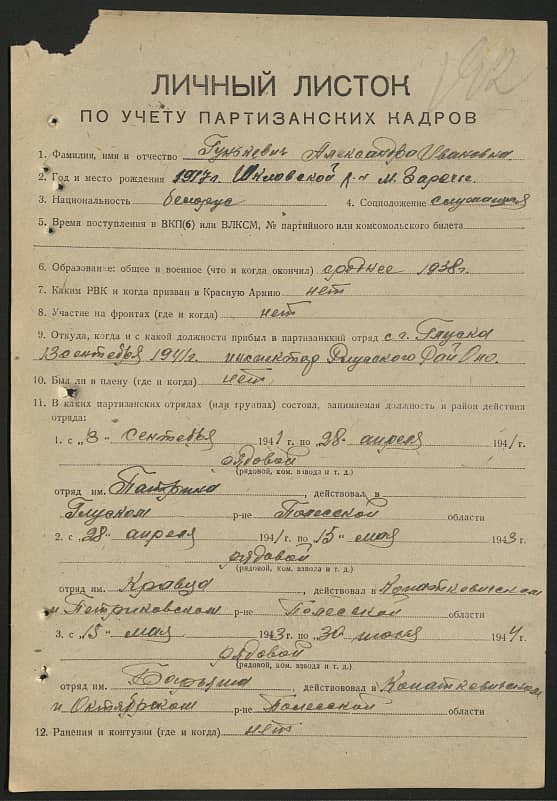 192
ЛИЧНЫЙ ЛИСТОК
ПО УЧЕТУ ПАРТИЗАНСКИХ КАДРОВ
1. Фамилия, имя и отчество Александра Ивановна
2. Год и место рождения 1917г. Шкловской р-н м. Заречье
3. Национальность белорус 4. Соцположение служащая
5. Время поступления в ВКП(б) или ВЛКСМ, № партийного или комсомольского билета
6. Образование: общее и военное (что и когда окончил) среднее 1938г.
7. Каким РВК и когда призван в Красную Армию нет
8. Участие на фронтах (где и когда) нет
9. Откуда, когда и с какой должности прибыл в партизанский отряд с г. Глуска
сентебья 1941г. инспектор Глусского Рай
10. Был ли в плену (где и когда) нет
11. В каких партизанских отрядах (или группах) состоял, занимаемая должность и район действия
отряда:
1. с „3" сентебья 1941 г. по „28" апреля 1941г.
рядовой
(рядовой, ком. взвода и т. д.)
отряд им. , действовал в
Глуском р-не Полесской области
2. с „28" апреля 1941г. по „15" мая 1943г.
рядовой
(рядовой, ком. взвода и т. д.)
отряд им. Кравца , действовал в Копаткевичском
и Петриковском р-не Полесской области
3. с „15" мая 1943г. по „30" июня 1944г.
рядовой
(рядовой, ком. взвода и т. д.)
отряд им. , действовал в Копаткевичском
и Октябрском р-не Полесской области
12. Ранения и контузии (где и когда) нет